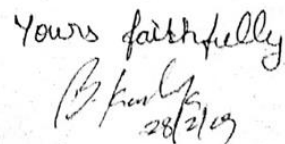 Yours faithfully
28/2/09